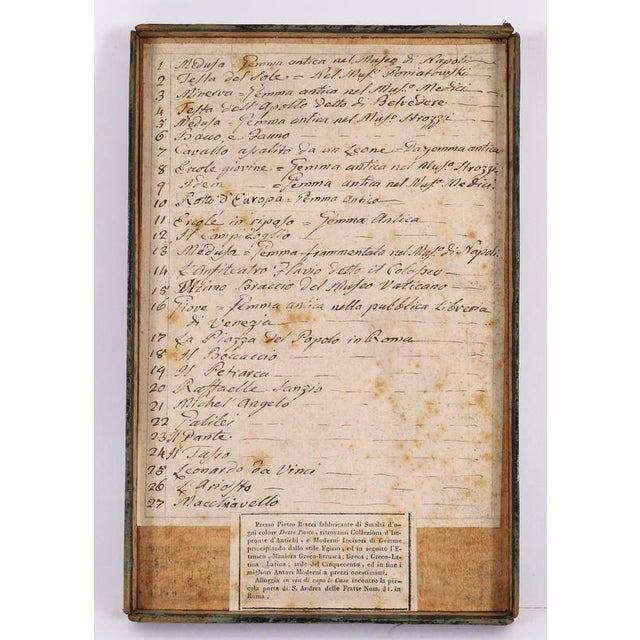 1 Medusa - Gemma antica nel Museo di Napoli
2 Testa del Sole = Nel Mus.o Poniatowski
3 Minerva = Gemma antica nel Mus.o Medici
4 Testa dell'Apollo detto di Belvedere
5 Medusa = Gemma antica nel Mus.o Strozzi
6 Bacco, e Fauno
7 Cavallo assalito da un Leone = Da gemma antica
8 Ercole giovine = Gemma antica nel Mus.o Strozzi
9 Idem = Gemma antica nel Mus.o Medici
10 Ratto d'Europa = Gemma antica
11 Ercole in riposo = Gemma Antica
12 Il Campidoglio
13 Medusa = Gemma frammentata nel Mus.o di Napoli
14 L'Anfiteatro Flavio detto il Colosseo
15 Braccio del Museo Vaticano
16 Giove = Gemma antica nella pubblica Libreria
di Venezia
17 La Piazza del Popolo in Roma
18 Il Boccaccio
19 Il Petrarca
20 Raffaelle Sanzio
21 Michel Angelo
22 Galilei
23 Il Dante
24 Il Tasso
25 Leonardo da Vinci
26 L'Ariosto
27 Macchiavello
Presso Pietro Bracci fabbricante di Smalti d'o-
gni colore Dette Paste, ritrovansi Collezioni d'Im-
pronte d'Antichi, e Moderni Incisori di Gemme
principiando dallo stile Egizio, ed in seguito l'E-
trusco, Maniera Greco-Etrusca; Greca; Greco-La-
tina, Latina; stile del Cinquecento, ed in fine i
migliori Autori Moderni a prezzi onestissimi.
Alloggia in via di capo le Case incontro la pic-
cola porta di S. Andrea delle Fratte Num. in
Roma.